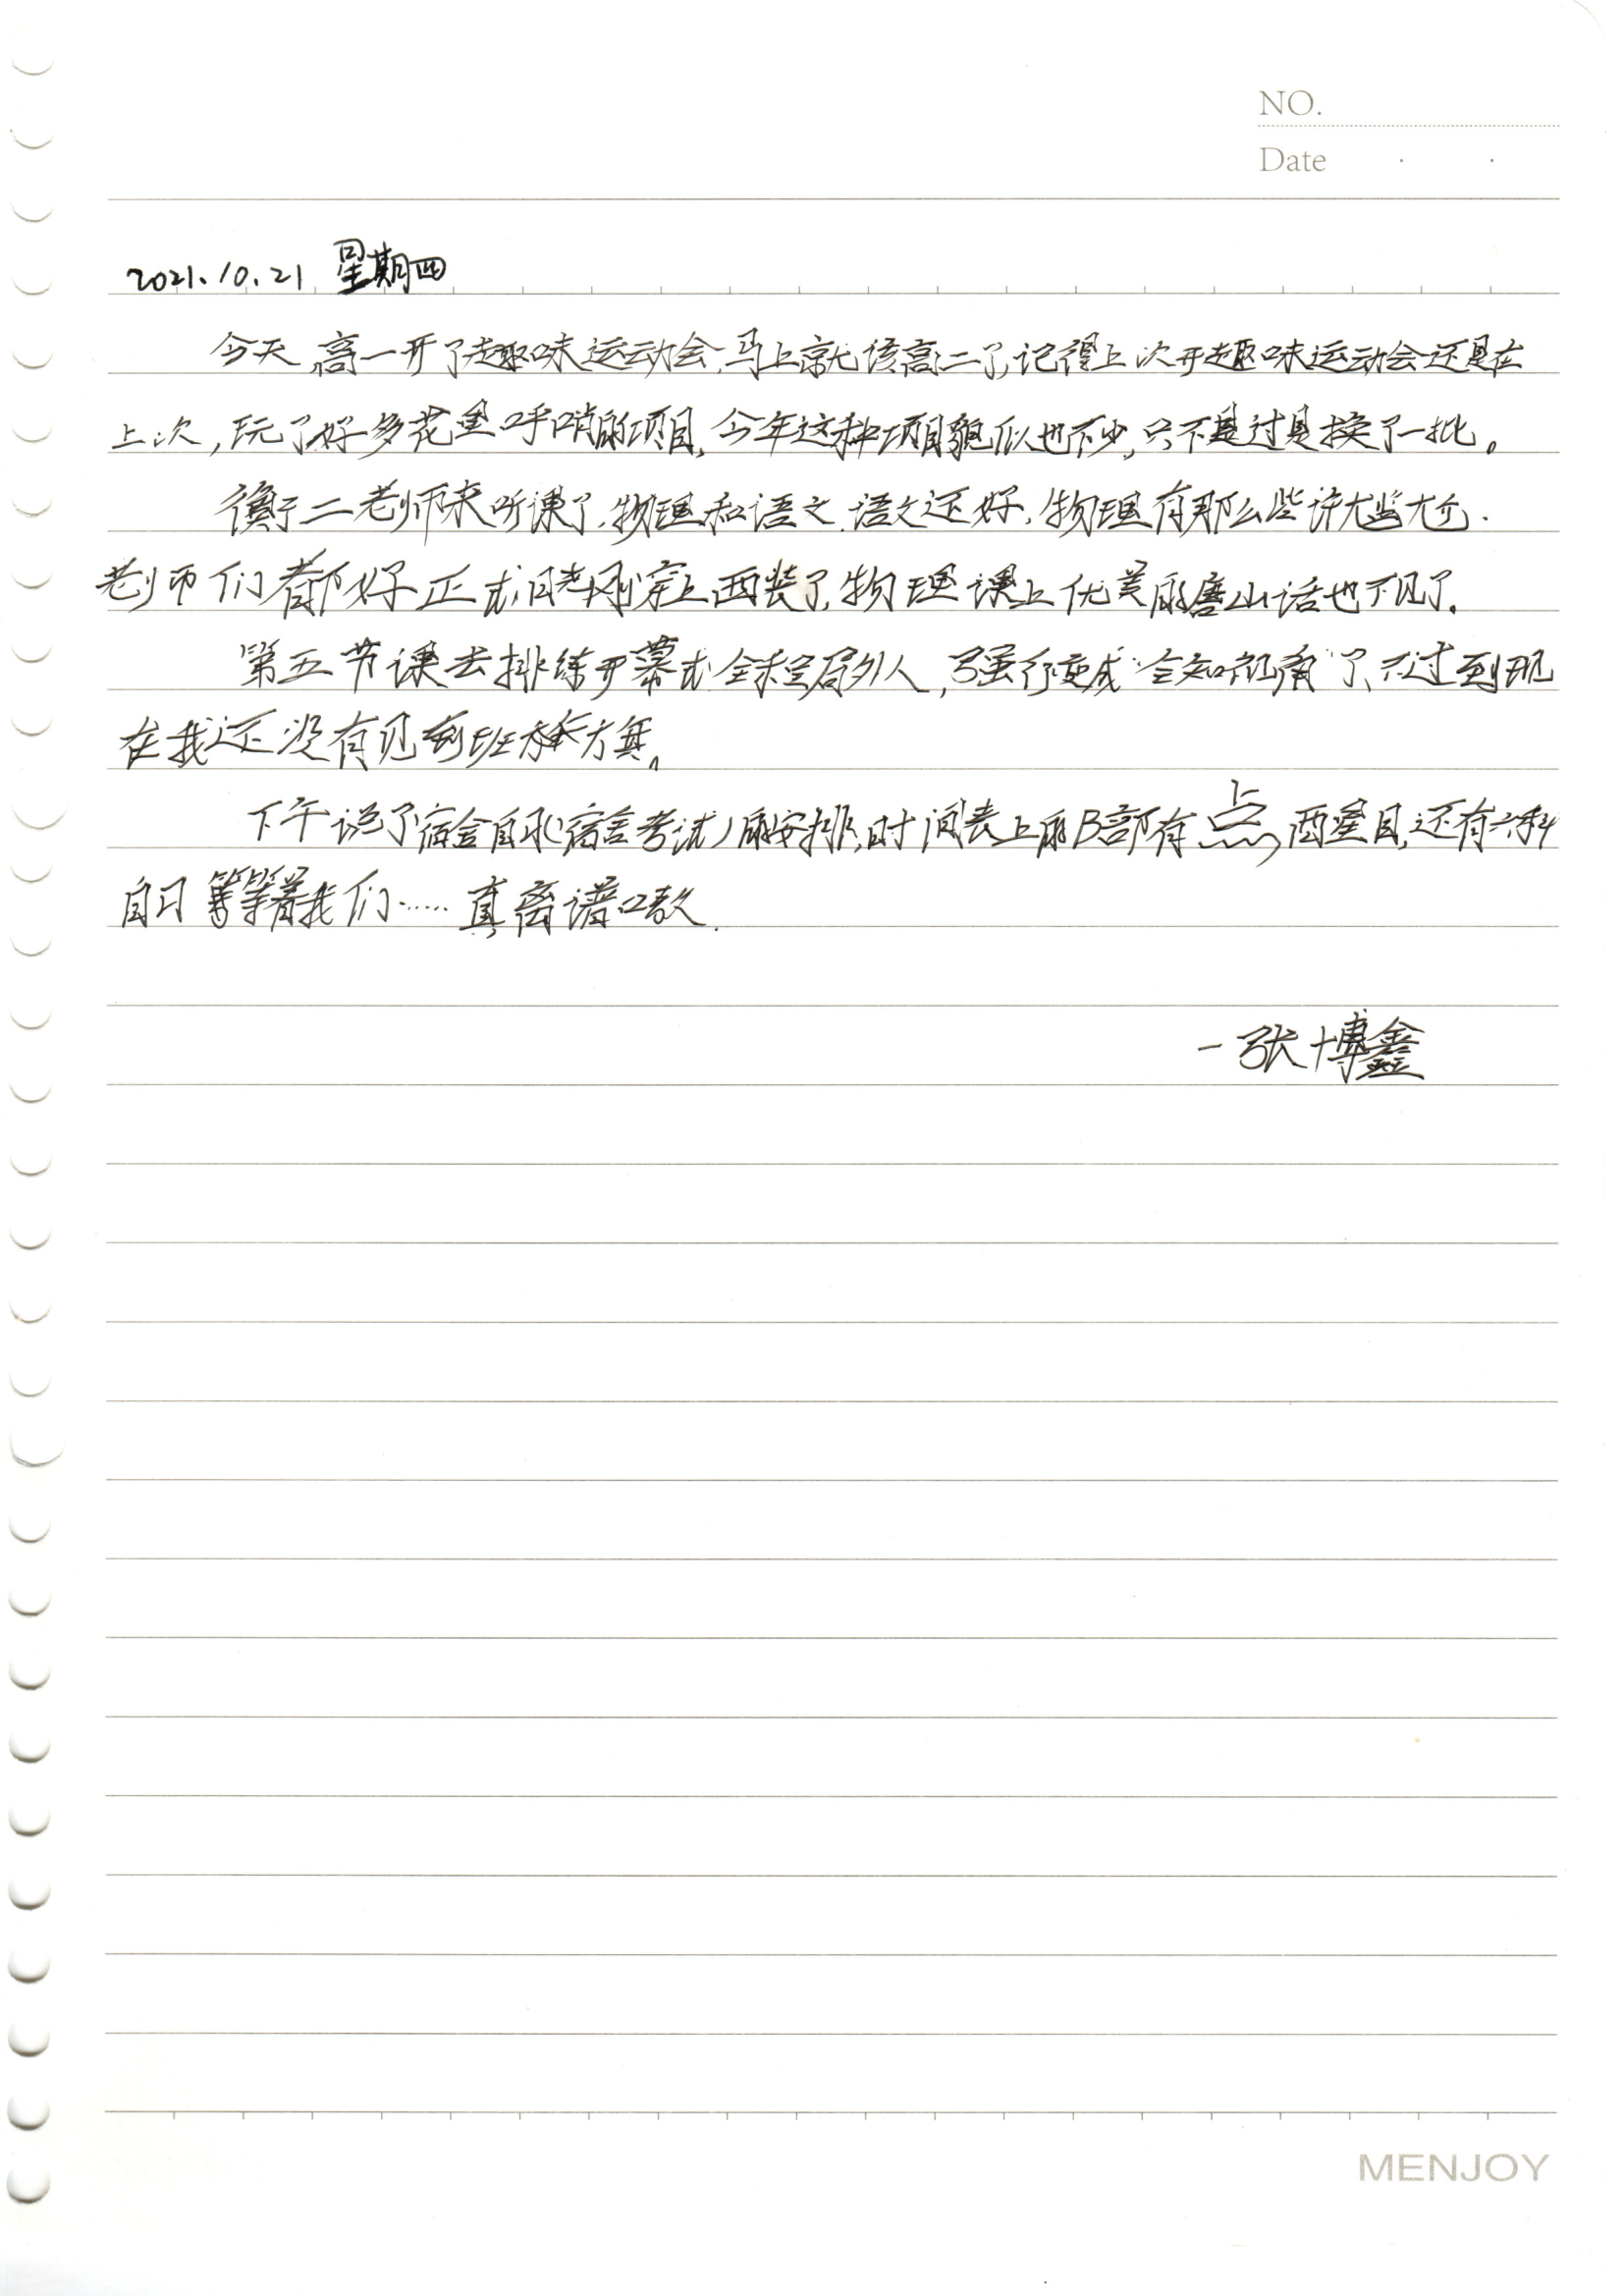 NO.
Date
2021.10.21 星期四
今天,高一开了趣味运动会,马上就该高二了,记得上次开趣味运动会还是在
上次,玩了好多花里呼哨的项目,今年这种项目貌似也不少,只不是过是换了一批。
衡二老师来听课了,物理和语文,语文还好,物理有那么些许尴尬.
老师们都好正式,刚穿上西装了,物理课上优美的唐山话也不见了。
第五节课去排练开幕式,全程局外人,强行变成“全知视角”了,不过到现
在我还没有见到班旗方阵。
下午说了宿舍自习(宿舍考试)的安排,时间表上的B部有点 两星目,还有六科
自习等等着我们……真离谱嗷.
—张博鑫
MENJOY